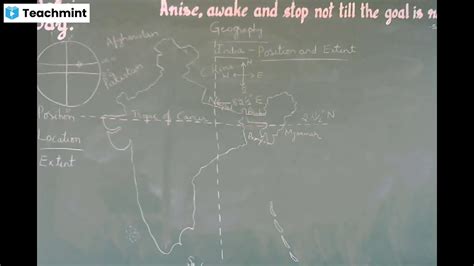 Teachmint
Anise, awake and stop not till the goal is
Geography
India - Position and Extent
Afghanistan
Pakistan
China
N
W E
S
82½° E
Position
Tropic of Cancer
23½° N
Location
Myanmar
Extent